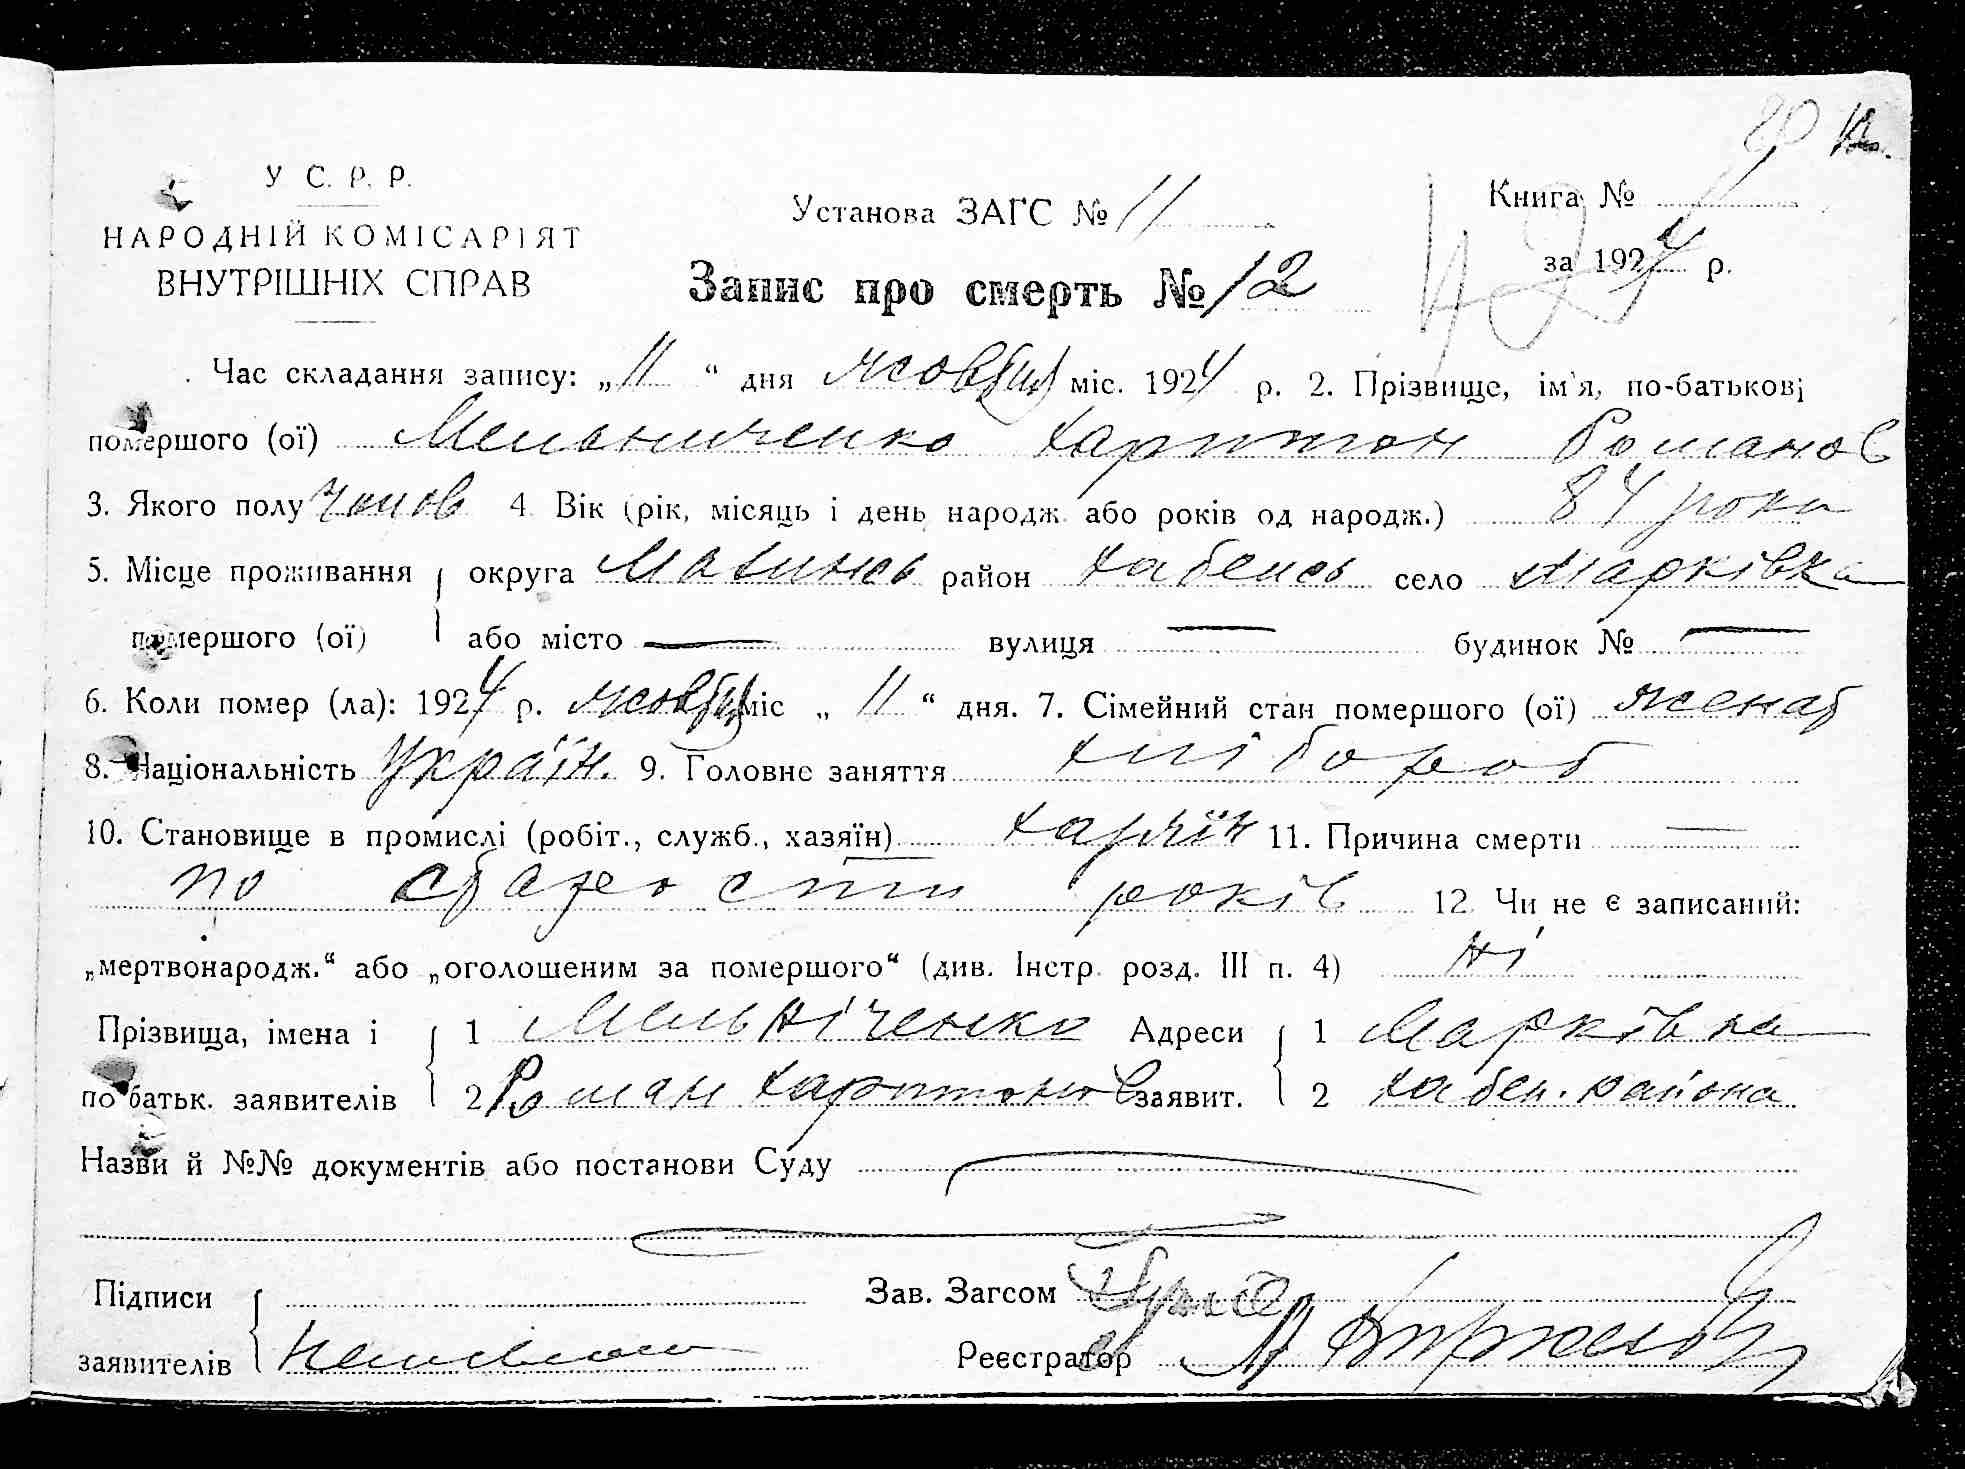 У С. Р. Р.
НАРОДНІЙ КОМІСАРІЯТ
ВНУТРІШНІХ СПРАВ
Установа ЗАГС № 11
Запис про смерть № 12
Книга №
за 1924 р.
Час складання запису: „11“ дня жовтня міс. 1924 р. 2. Прізвище, ім'я, по-батькові
помершого (ої) Мельниченко Харитон Романов
3. Якого полу чолов 4. Вік (рік, місяць і день народж. або років од народж.) 84 рока
5. Місце проживання округа район Хабенсь село Марківка
помершого (ої) або місто — вулиця — будинок № —
6. Коли помер (ла): 1924 р. жовтня міс „11“ дня. 7. Сімейний стан помершого (ої) женат
8. Національність Україн. 9. Головне заняття хлібороб
10. Становище в промислі (робіт., служб., хазяїн) хазяїн 11. Причина смерти —
по старости років 12. Чи не є записаний:
„мертвонародж.“ або „оголошеним за помершого“ (див. Інстр. розд. III п. 4) Ні
Прізвища, імена і 1 Мельніченко Адреси 1 Марківка
по батьк. заявителів 2 Роман Харитонов заявит. 2 Хабен. района
Назви й №№ документів або постанови Суду
Підписи Зав. Загсом
заявителів Реєстратор